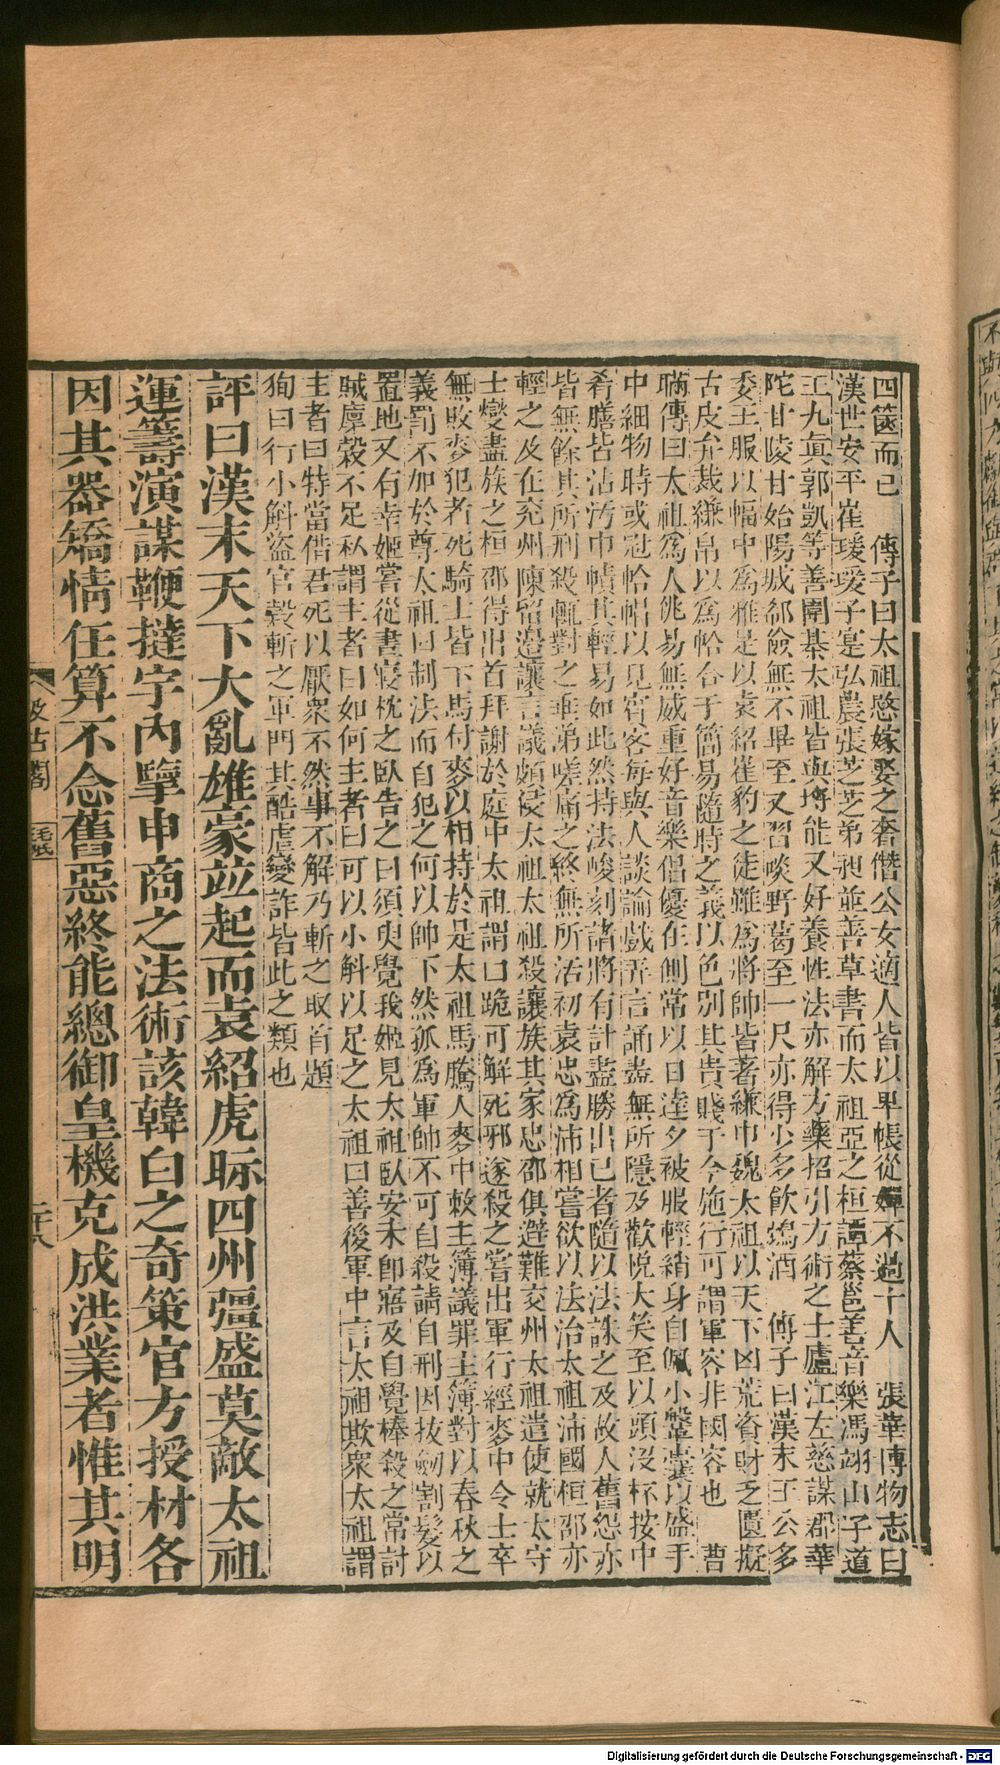 四篋而已　傅子曰太祖愍嫁娶之奢僭公女適人皆以皁帳從婢不過十人　張華博物志曰
漢世安平崔瑗瑗子寔弘農張芝芝弟昶並善草書而太祖亞之桓譚蔡邕善音樂馮翊山子道
王九眞郭凱等善圍棊太祖皆與埒能又好養性法亦解方藥招引方術之士廬江左慈譙郡華
陀甘陵甘始陽城郤儉無不畢至又習啖野葛至一尺亦得少多飲鴆酒　傅子曰漢末王公多
委王服以幅巾爲雅是以袁紹崔豹之徒雖爲將帥皆著縑巾魏太祖以天下凶荒資財乏匱擬
古皮弁裁縑帛以爲帢合于簡易隨時之義以色別其貴賤于今施行可謂軍容非國容也　曹
瞞傳曰太祖爲人佻易無威重好音樂倡優在側常以日達夕被服輕綃身自佩小鞶囊以盛手
巾細物時或冠帢帽以見賓客每與人談論戲弄言誦盡無所隱及歡悅大笑至以頭沒杯按中
肴膳皆沾汚巾幘其輕易如此然持法峻刻諸將有計畫勝出己者隨以法誅之及故人舊怨亦
皆無餘其所刑殺輒對之垂涕嗟痛之終無所活初袁忠爲沛相嘗欲以法治太祖沛國桓邵亦
輕之及在兖州陳留邉讓言議頗侵太祖太祖殺讓族其家忠邵俱避難交州太祖遣使就太守
士燮盡族之桓邵得出首拜謝於庭中太祖謂曰跪可解死邪遂殺之嘗出軍行經麥中令士卒
無敗麥犯者死騎士皆下馬付麥以相持於是太祖馬騰入麥中敕主簿議罪主簿對以春秋之
義罰不加於尊太祖曰制法而自犯之何以帥下然孤爲軍帥不可自殺請自刑因拔劒割髮以
置地又有幸姬嘗從晝寢枕之臥告之曰須臾覺我姬見太祖臥安未卽寤及自覺棒殺之常討
賊廩穀不足私謂主者曰如何主者曰可以小斛以足之太祖曰善後軍中言太祖欺衆太祖謂
主者曰特當借君死以厭衆不然事不解乃斬之取首題
狥曰行小斛盜官穀斬之軍門其酷虐變詐皆此之類也
評曰漢末天下大亂雄豪竝起而袁紹虎眎四州彊盛莫敵太祖
運籌演謀鞭撻宇內擥申商之法術該韓白之奇策官方授材各
因其器矯情任算不念舊惡終能總御皇機克成洪業者惟其明
汲古閣
毛氏
二十八
Digitalisierung gefördert durch die Deutsche Forschungsgemeinschaft - DFG